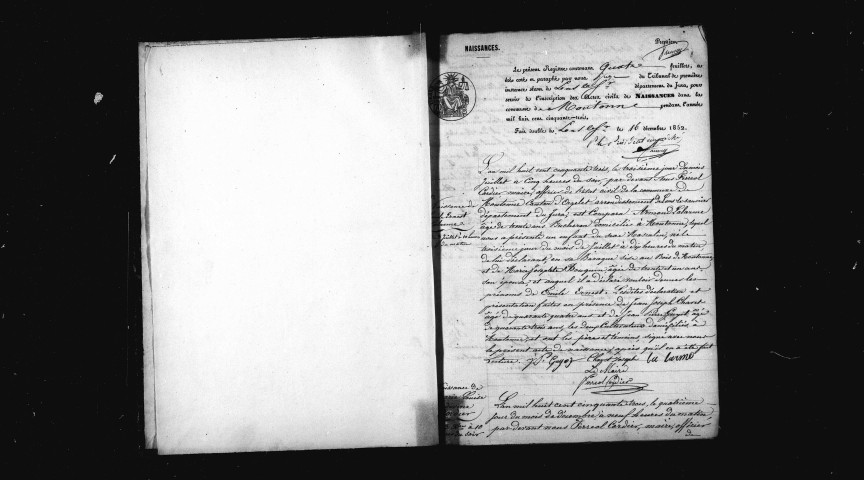 NAISSANCES.
Premier
Le présent Registre contenant quatre feuillets, a
été coté et paraphé par nous Juge du Tribunal de première
instance séant de Lons département du Jura, pour
servir de l'inscription des Actes civils de NAISSANCES dans la
commune de Montonne pendant l'année
mil huit cent cinquante-trois.
Fait double de Lons le 16 décembre 1852.
L'an mil huit cent cinquante trois, le troisième jour du mois
Juillet à cinq heures du soir, par devant nous Perreal
Cordier maire, officier de l'état civil de la commune de
Montonne Canton d'Orgelet arrondissement de Lons le saunier
département du Jura, est comparu Armand
âgé de trente ans Bucheron domicilié à Montonne, lequel
nous a présenté un enfant du sexe Masculin, né le
troisième jour du mois de Juillet à dix heures du matin
de lui déclarant, en sa Baraque sise au Bois de Montonne
et de Marie Josephte âgée de trente et un ans
son épouse, et auquel il a déclaré vouloir donner les
prénoms de Emile Ernest. Lesdites déclaration et
présentation faites en présence de Jean Joseph
âgé de quarante quatre ans et de Jean âgé
de quarante trois ans, les deux Cultivateurs domiciliés à
Montonne, et ont les père et témoins, signé avec nous
le présent acte de naissance, après qu'il en a été fait
lecture.
Le Maire
Perreal Cordier
Naissance de
Ernest
Naissance de
Louise
L'an mil huit cent cinquante trois, le quatrième
jour du mois de décembre, à neuf heures du matin
par devant nous Perreal Cordier, maire, officier
de